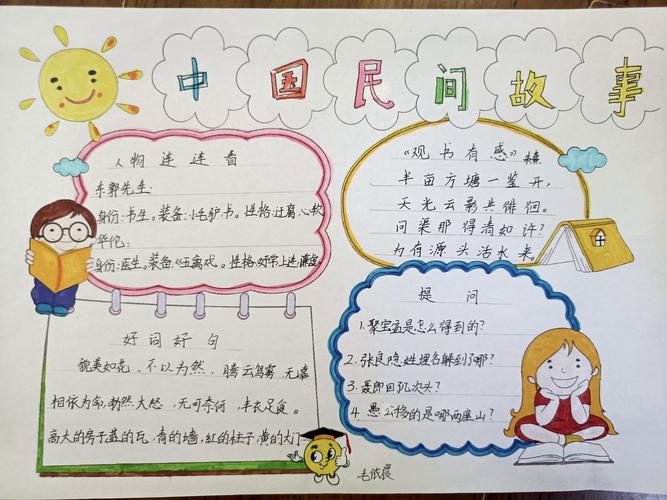 中国民间故事
人物连连看
东郭先生:
身份:书生。装备:小毛驴、书。性格:迂腐、心软
华佗:
身份:医生。装备:《五禽戏》。性格:好学上进、谦虚。
《观书有感》朱熹
半亩方塘一鉴开,
天光云影共徘徊。
问渠那得清如许?
为有源头活水来。
好词好句
貌美如花、不以为然、腾云驾雾、无忧
相依为命、勃然大怒、无可奈何、丰衣足食。
高大的房子蓝的瓦,青的墙,红的柱子,黄的大门
提问
1.聚宝盆是怎么得到的?
2.张良隐姓埋名躲到了哪?
3.聂郎回几次头?
4.愚公移的是哪两座山?
毛依晨